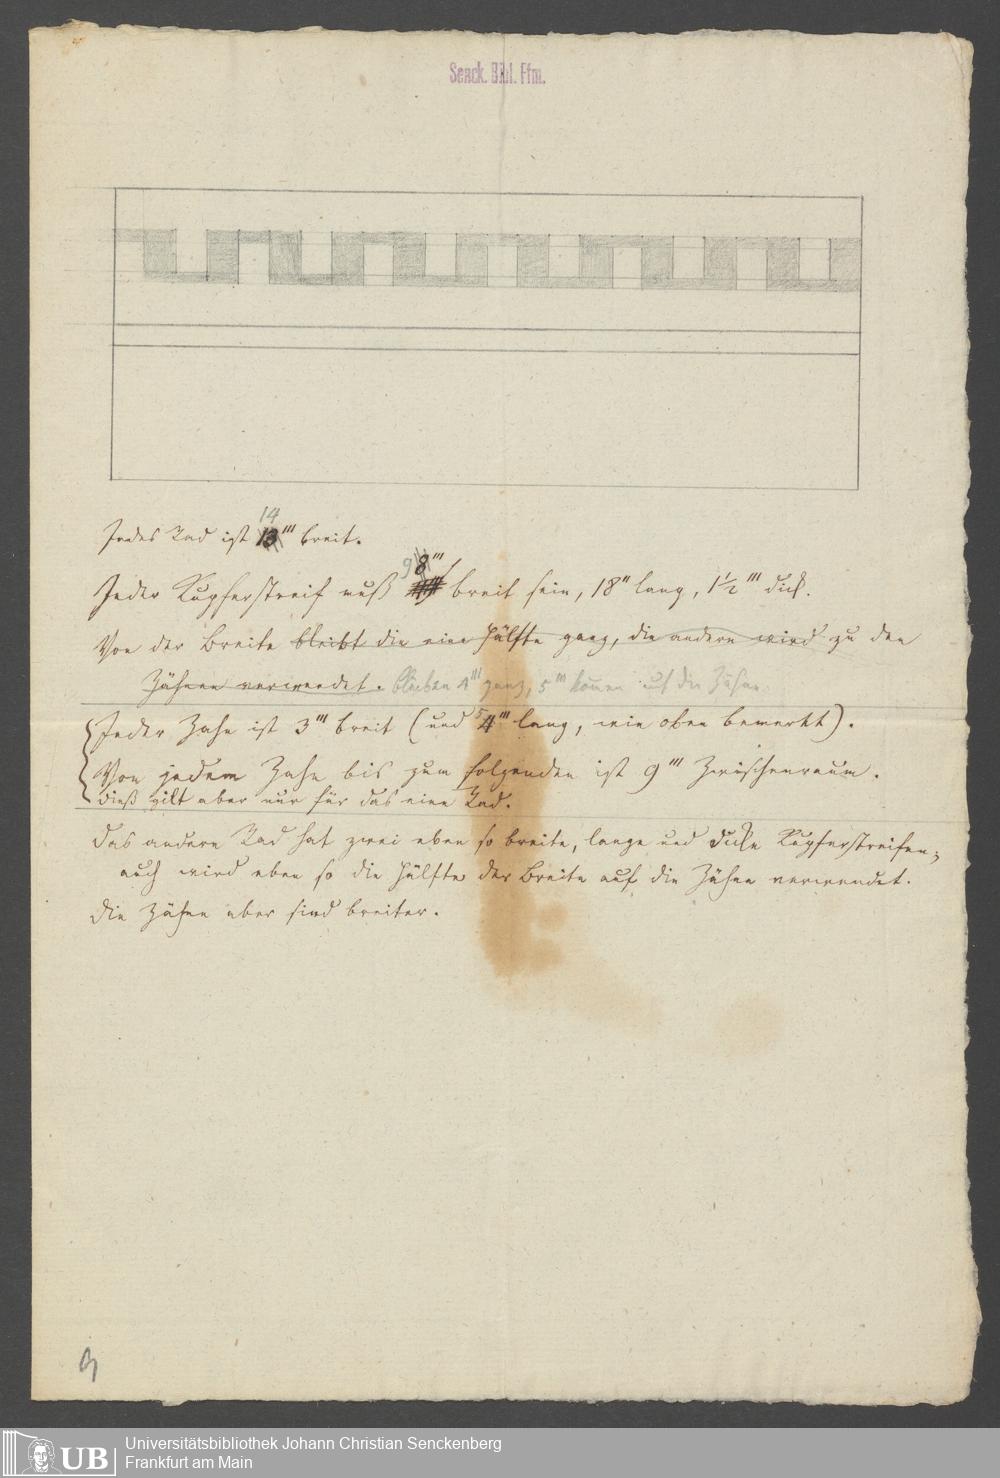 Senck. Bibl. Ffm.
14
Jedes Rad ist 13''' breit.
9 8'''
Jeder Kupferstreif muß breit sein, 18'' lang, 1½''' dick.
Von der Breite bleibt die eine Hälfte ganz, die andere wird zu den
Zähnen verwendet. bleiben 4''' ganz, 5''' kommen auf die Zähne.
Jeder Zahn ist 3''' breit (und 5 4''' lang, wie oben bemerkt).
Von jedem Zahn bis zum folgenden ist 9''' Zwischenraum.
Dieß gilt aber nur für das eine Rad.
Das andere Rad hat zwei eben so breite, lange und dicke Kupferstreifen;
auch wird eben so die Hälfte der Breite auf die Zähne verwendet.
Die Zähne aber sind breiter.
UB
Universitätsbibliothek Johann Christian Senckenberg
Frankfurt am Main